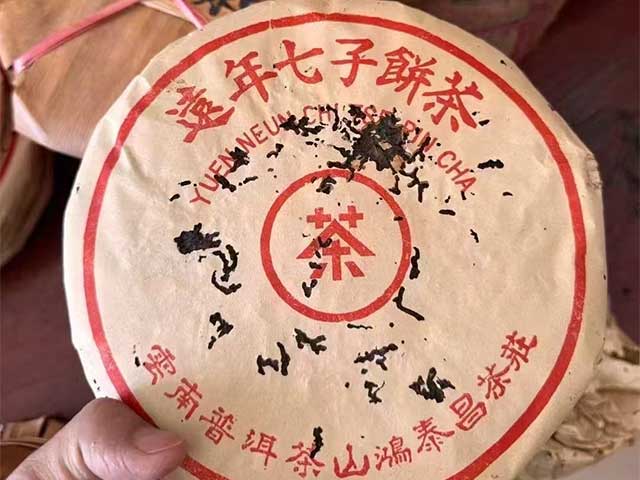 遠年七子餅茶
YUEN CHI CHA
茶
雲南普洱茶山鴻泰昌茶莊